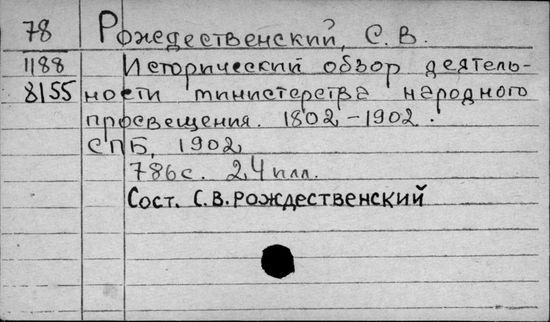 78 Рождественский, С. В.
1188 Исторический обзор деятель-
8155 ности министерства народного
просвещения. 1802-1902.
СПБ, 1902
786с. 24 илл.
Сост. С.В. Рождественский